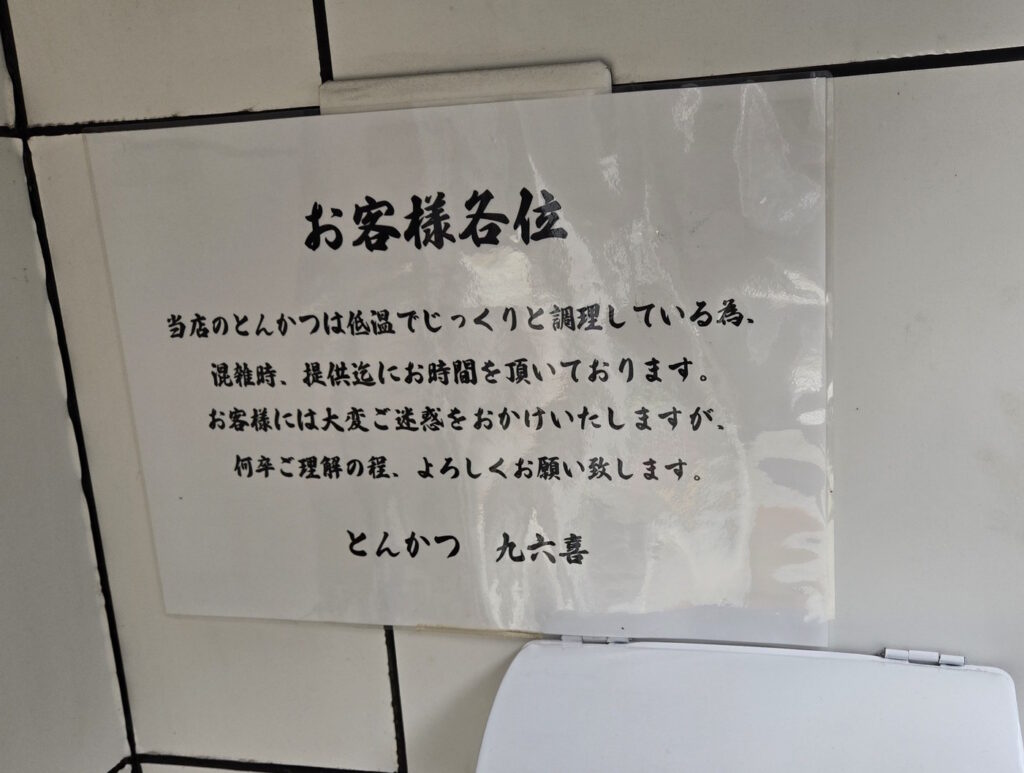 お客様各位
当店のとんかつは低温でじっくりと調理している為、
混雑時、提供迄にお時間を頂いております。
お客様には大変ご迷惑をおかけいたしますが、
何卒ご理解の程、よろしくお願い致します。
とんかつ　九六喜